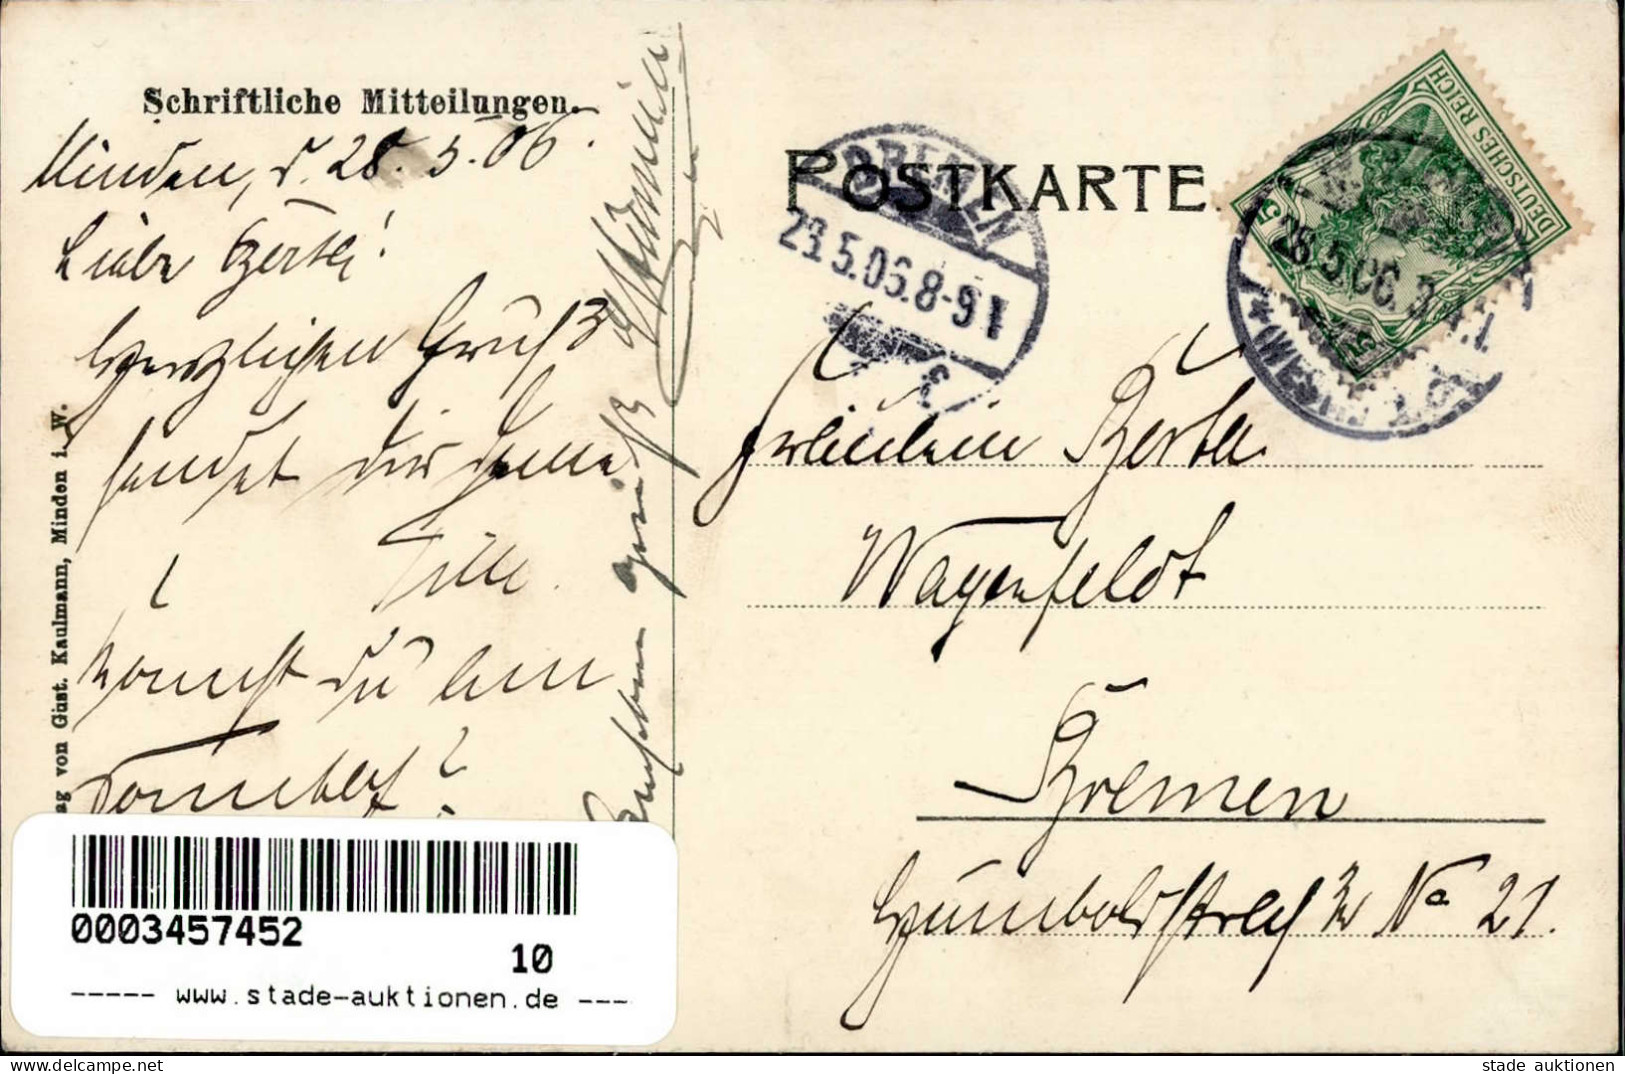 Schriftliche Mitteilungen.
Minden, d. 28.5.06.
Liebe Berta!
Herzlichen Gruß
sendet dir deine
Tille.
Kommst du am
Gruß
ag von Gust. Kaulmann, Minden i. W.
POSTKARTE
BREMEN
29.5.06.8-9V
DEUTSCHES REICH
5
28.5.06.3-4
Fräulein Berta
Wagenfeldt
Bremen
Humboldtstraße No 21.
0003457452
10
----- www.stade-auktionen.de ---
stade auktionen